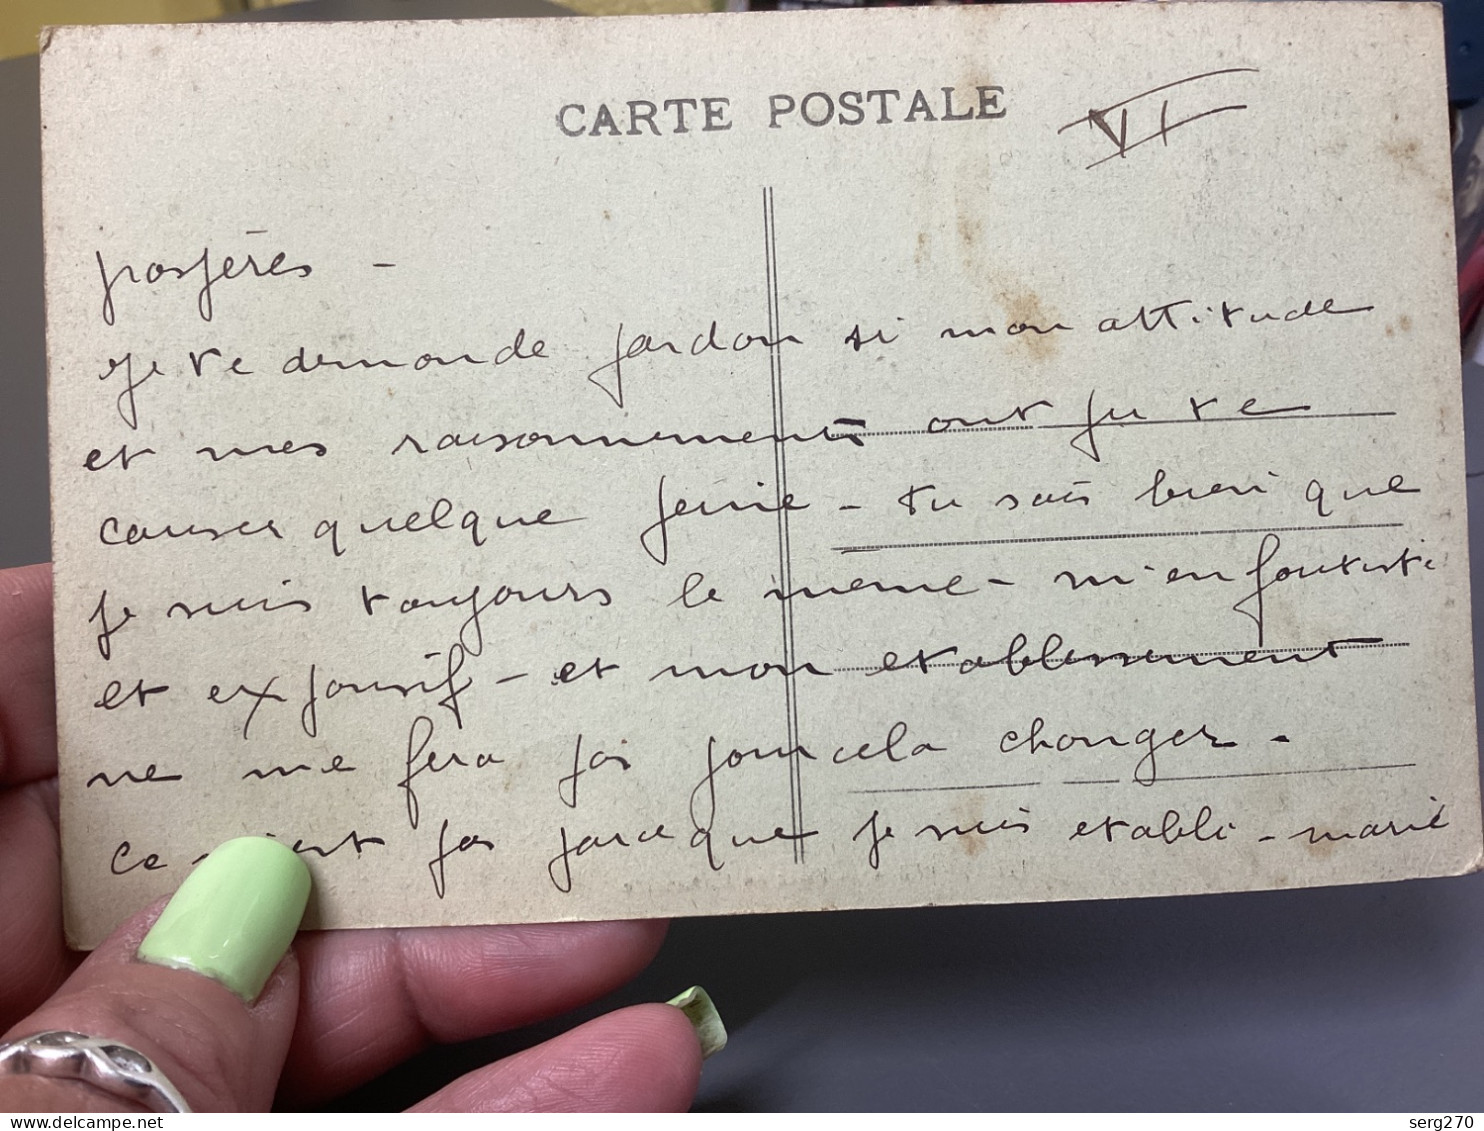 CARTE POSTALE
VI
prospères -
Je te demande pardon si mon attitude
et mes raisonnements ont pu te
causer quelque peine - tu sais bien que
je suis toujours le même - m'enfoutiste
et expansif - et mon etablissement
ne me fera pas pour cela changer -
ce n'est pas parce que je suis etabli - marié
delcampe.net
serg270